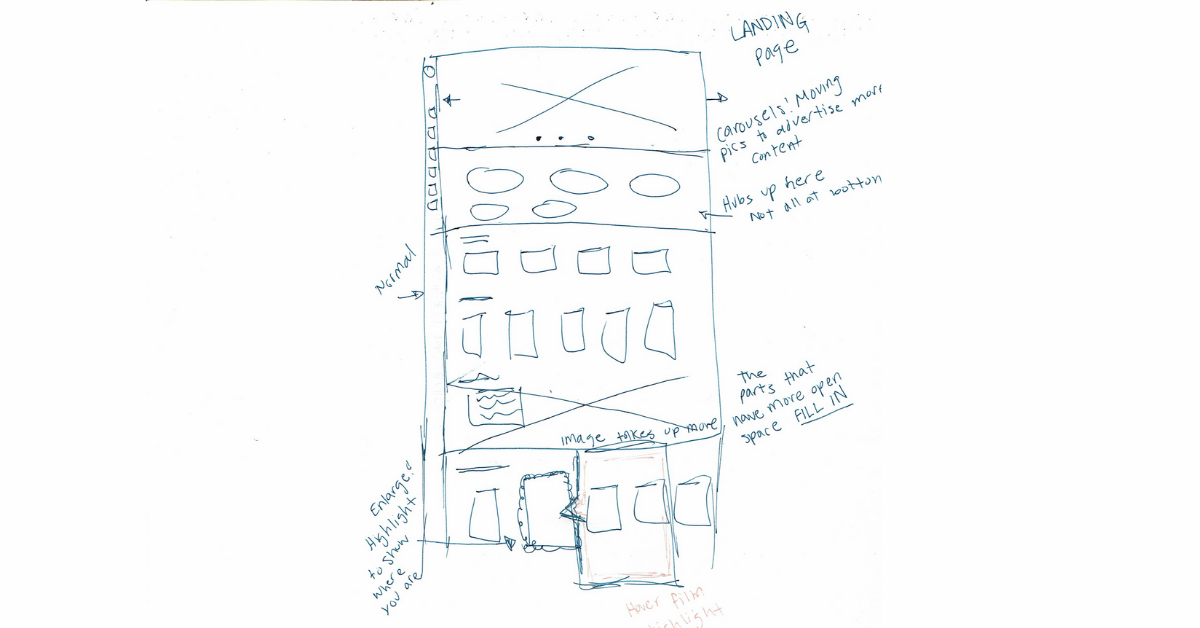 LANDING
page
Carousels! Moving
pics to advertise more
content
Hubs up here
Not all at bottom
Normal
the
parts that
have more open
space FILL IN
image takes up more
Enlarge &
Highlight
to show
where
you are
Hover film
highlight